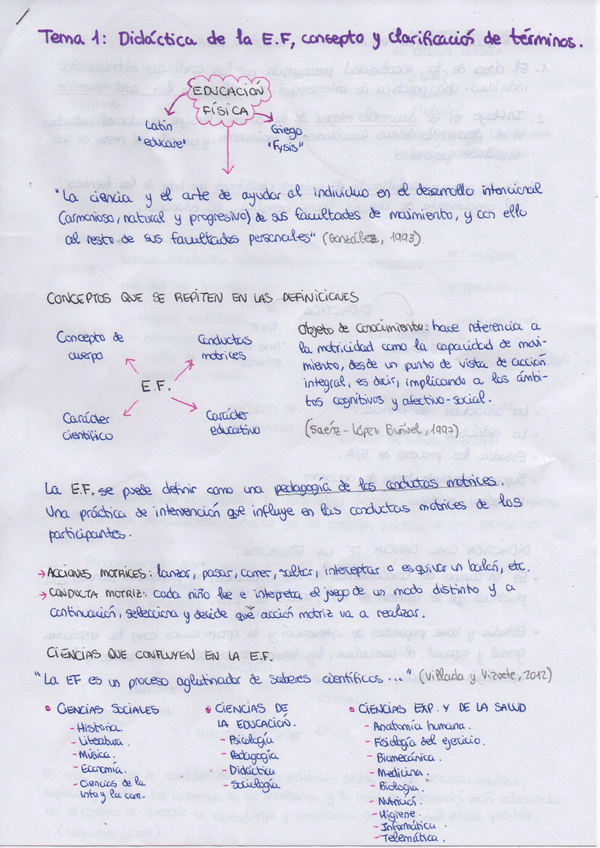 Tema 1: Didáctica de la E.F, concepto y clarificación de términos.
EDUCACIÓN
FÍSICA
Latín
"educare"
Griego
"Fysis"
"La ciencia y el arte de ayudar al individuo en el desarrollo intencional
(armonioso, natural y progresivo) de sus facultades de movimiento, y con ello
al resto de sus facultades personales" (González, 1993)
CONCEPTOS QUE SE REPITEN EN LAS DEFINICIONES
Concepto de
cuerpo
Conductas
motrices
E.F.
Carácter
científico
Carácter
educativo
Objeto de conocimiento: hace referencia a
la motricidad como la capacidad de movi-
miento, desde un punto de vista de acción
integral, es decir, implicando a los ámbi-
tos cognitivos y afectivo-social.
(Saénz-López Buñuel, 1997)
La E.F. se puede definir como una pedagogía de las conductas motrices.
Una práctica de intervención que influye en las conductas motrices de los
participantes.
→ ACCIONES MOTRICES: lanzar, pasar, correr, saltar, interceptar o esquivar un balón, etc.
→ CONDUCTA MOTRIZ: cada niño lee e intepreta el juego de un modo distinto y a
continuación, selecciona y decide qué acción motriz va a realizar.
CIENCIAS QUE CONFLUYEN EN LA E.F.
"La EF es un proceso aglutinador de saberes científicos..." (Villada y Vizuete, 2012)
• CIENCIAS SOCIALES
- Historia.
- Literatura.
- Música.
- Economía.
- Ciencias de la
info y la com.
• CIENCIAS DE
LA EDUCACIÓN.
- Psicología
- Pedagogía
- Didáctica
- Sociología
• CIENCIAS EXP. Y DE LA SALUD
- Anatomía humana.
- Fisiología del ejercicio.
- Biomecánica.
- Medicina.
- Biología.
- Nutrición.
- Higiene.
- Informática.
- Telemática.